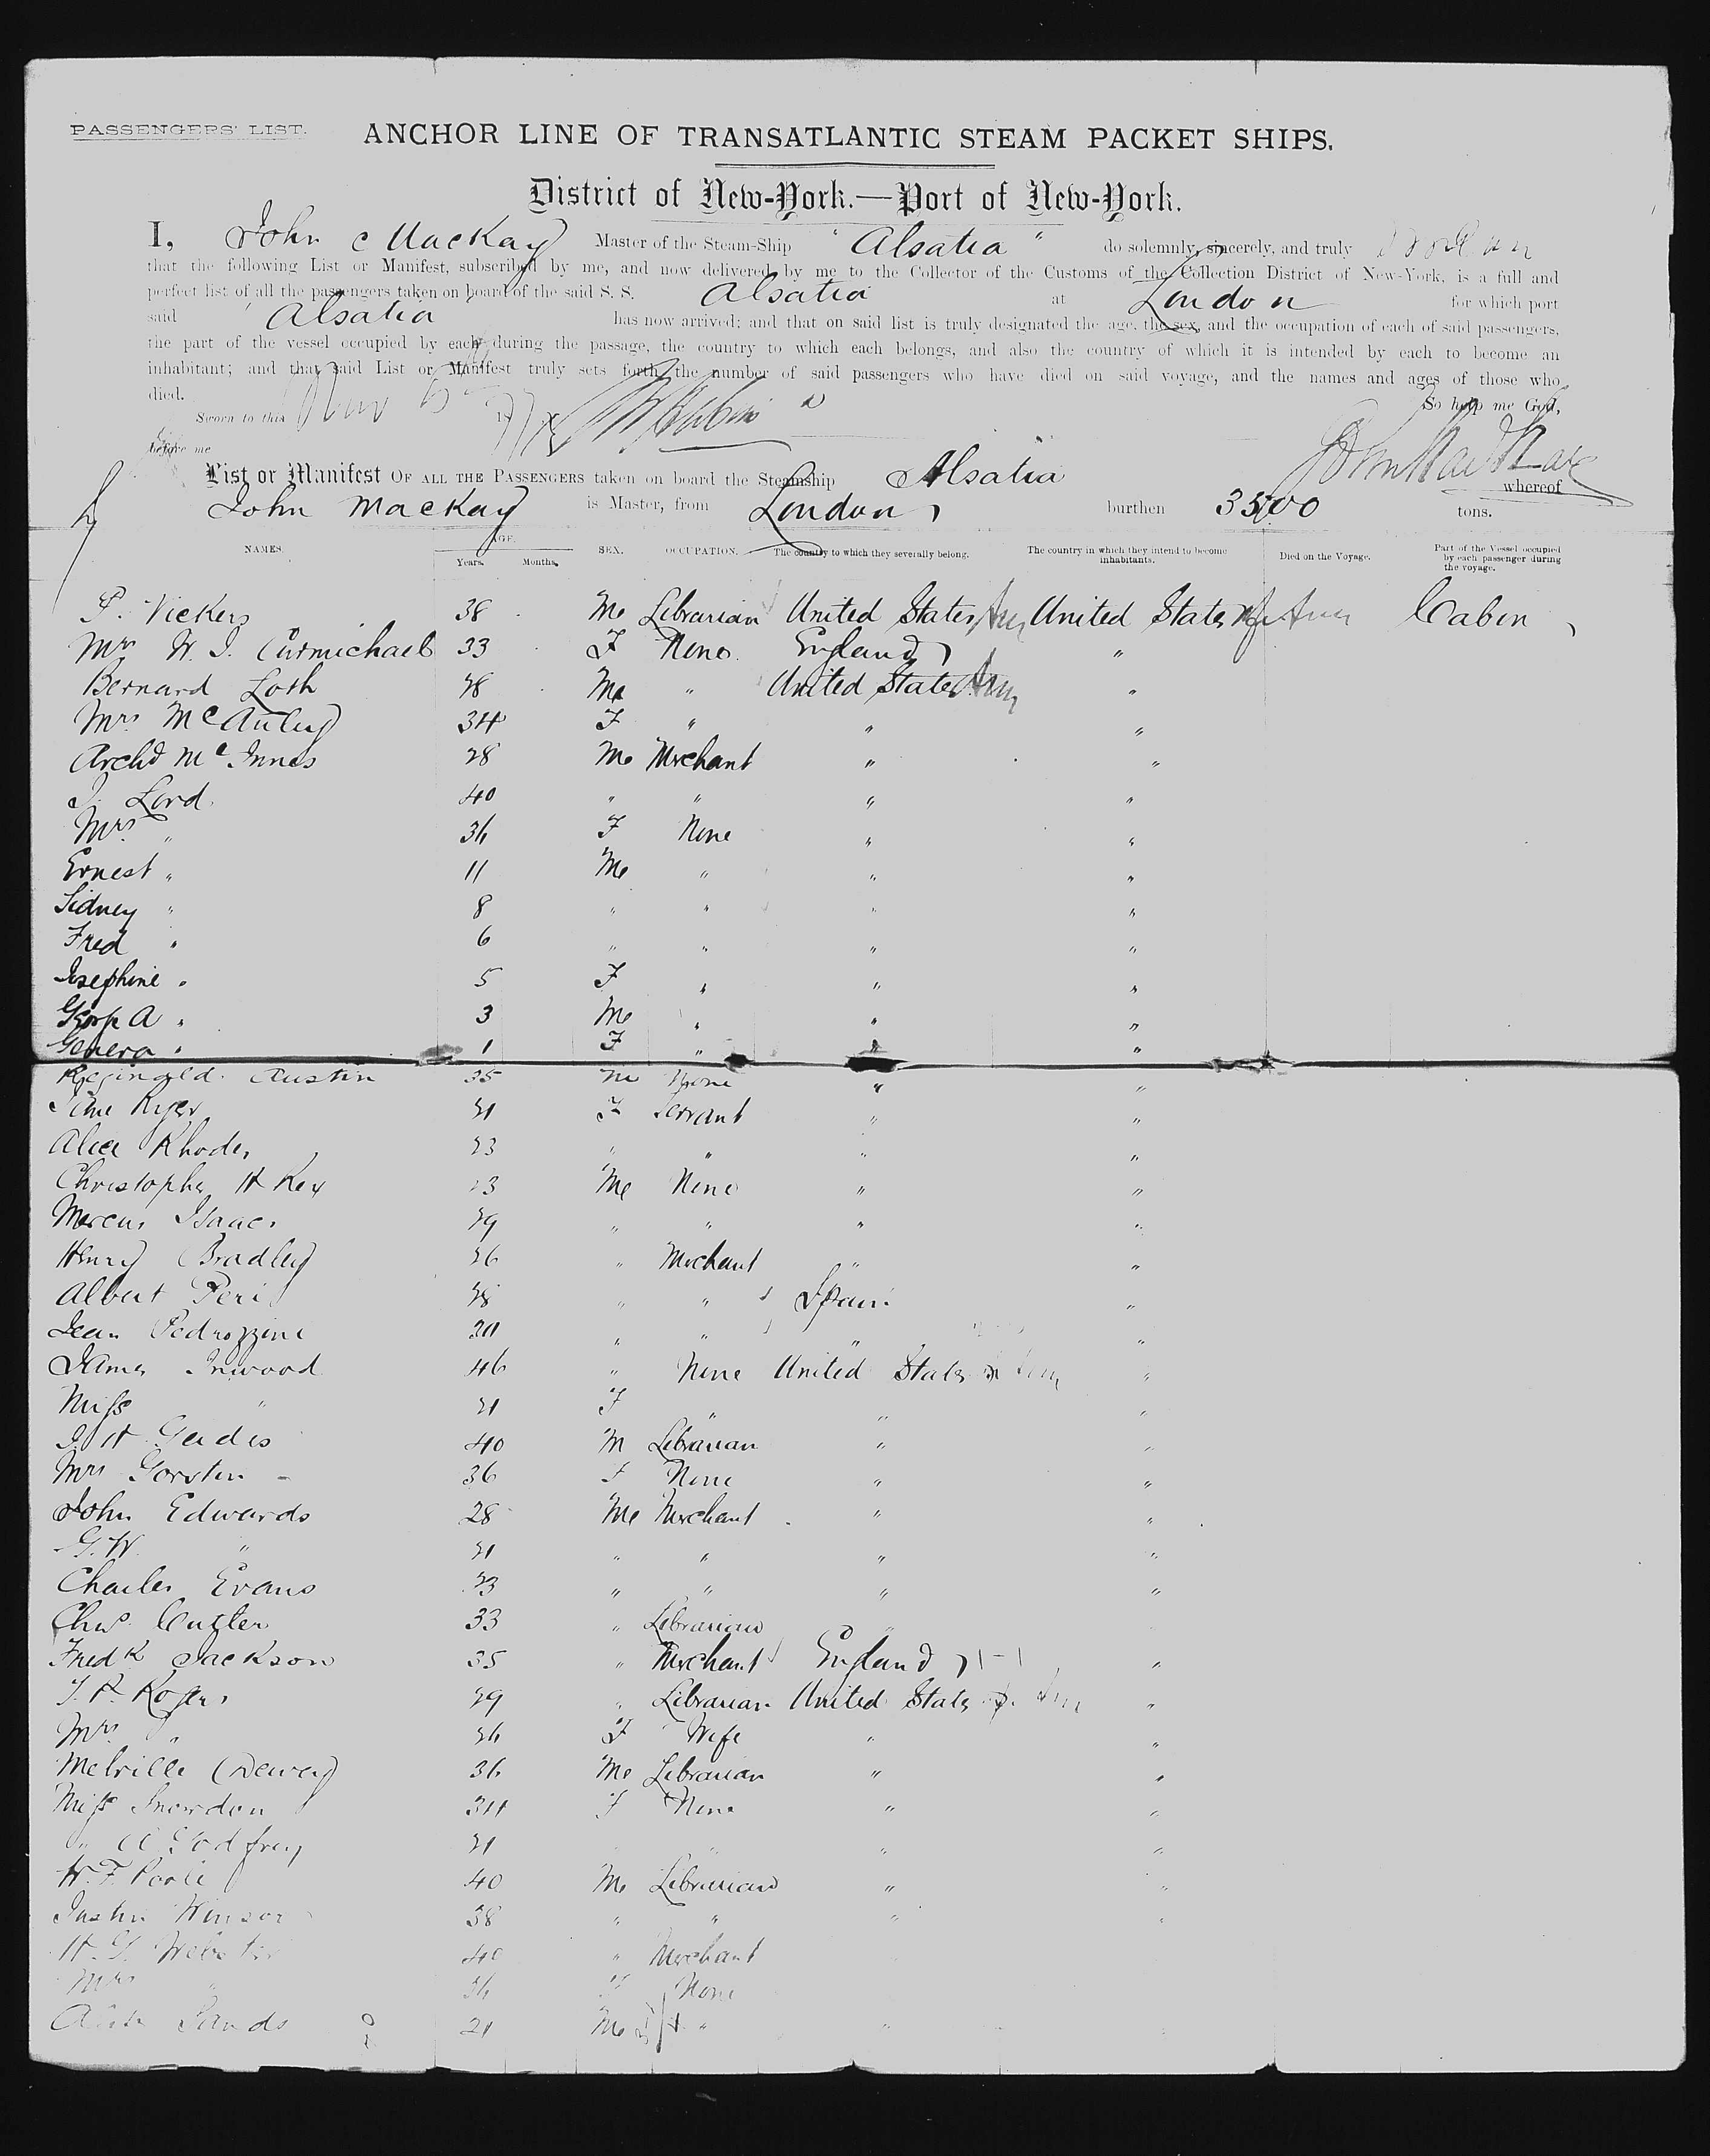 PASSENGERS' LIST.
ANCHOR LINE OF TRANSATLANTIC STEAM PACKET SHIPS.
District of New-York.—Port of New-York.
I, John MacKay Master of the Steam-Ship "Alsatia" do solemnly, sincerely, and truly
that the following List or Manifest, subscribed by me, and now delivered by me to the Collector of the Customs of the Collection District of New-York, is a full and
perfect list of all the passengers taken on board of the said S. S. Alsatia at London for which port
said Alsatia has now arrived; and that on said list is truly designated the age, the sex, and the occupation of each of said passengers,
the part of the vessel occupied by each during the passage, the country to which each belongs, and also the country of which it is intended by each to become an
inhabitant; and that said List or Manifest truly sets forth the number of said passengers who have died on said voyage, and the names and ages of those who
died. So help me God,
Sworn to this
before me
List or Manifest OF ALL THE PASSENGERS taken on board the Steamship Alsatia whereof
John MacKay is Master, from London, burthen 3500 tons.
NAMES. AGE. Years. Months. SEX. OCCUPATION. The country to which they severally belong. The country in which they intend to become inhabitants. Died on the Voyage. Part of the Vessel occupied by each passenger during the voyage.
P. Vickers 38 Me Librarian United States United States Cabin
Mrs W. I. Carmichael 33 F None England "
Bernard Loth Me " United States "
Mrs McAuley 34 F " " "
Archd McInnes 28 Me Merchant " "
Lord 40 " " " "
Mrs " 36 F None " "
Ernest " 11 Me " " "
Sidney " 8 " " " "
Fred " 6 " " " "
Josephine " 5 F " " "
A " 3 Me " " "
" 1 F " " "
Reginald Austin 35 m None " "
F Servant " "
Alice Rhodes 23 " " " "
Christopher H Rex Me None " "
Marcus Isaacs " " " "
Henry Bradley " Merchant " "
Albert Peri " " Spain "
Jean Pedrozzini " " " "
James Inwood 46 " None United States "
Miss " 21 F " " "
40 M Librarian " "
Mrs 36 F None " "
John Edwards 28 Me Merchant " "
G. W. " 21 " " " "
Charles Evans 23 " " " "
Chas. Cutter 33 " Librarian "
Fredk Jackson 35 " Merchant England "
Rogers " Librarian United States "
Mrs " F Wife " "
Melville Dewey 36 Me Librarian " "
Miss Snowdon 34 F None " "
" Godfrey 21 " "
W. F. Poole 40 Me Librarian " "
Justin Winsor 38 " " " "
Webster 40 " Merchant
Mrs " F None
Sands 21 Me " "